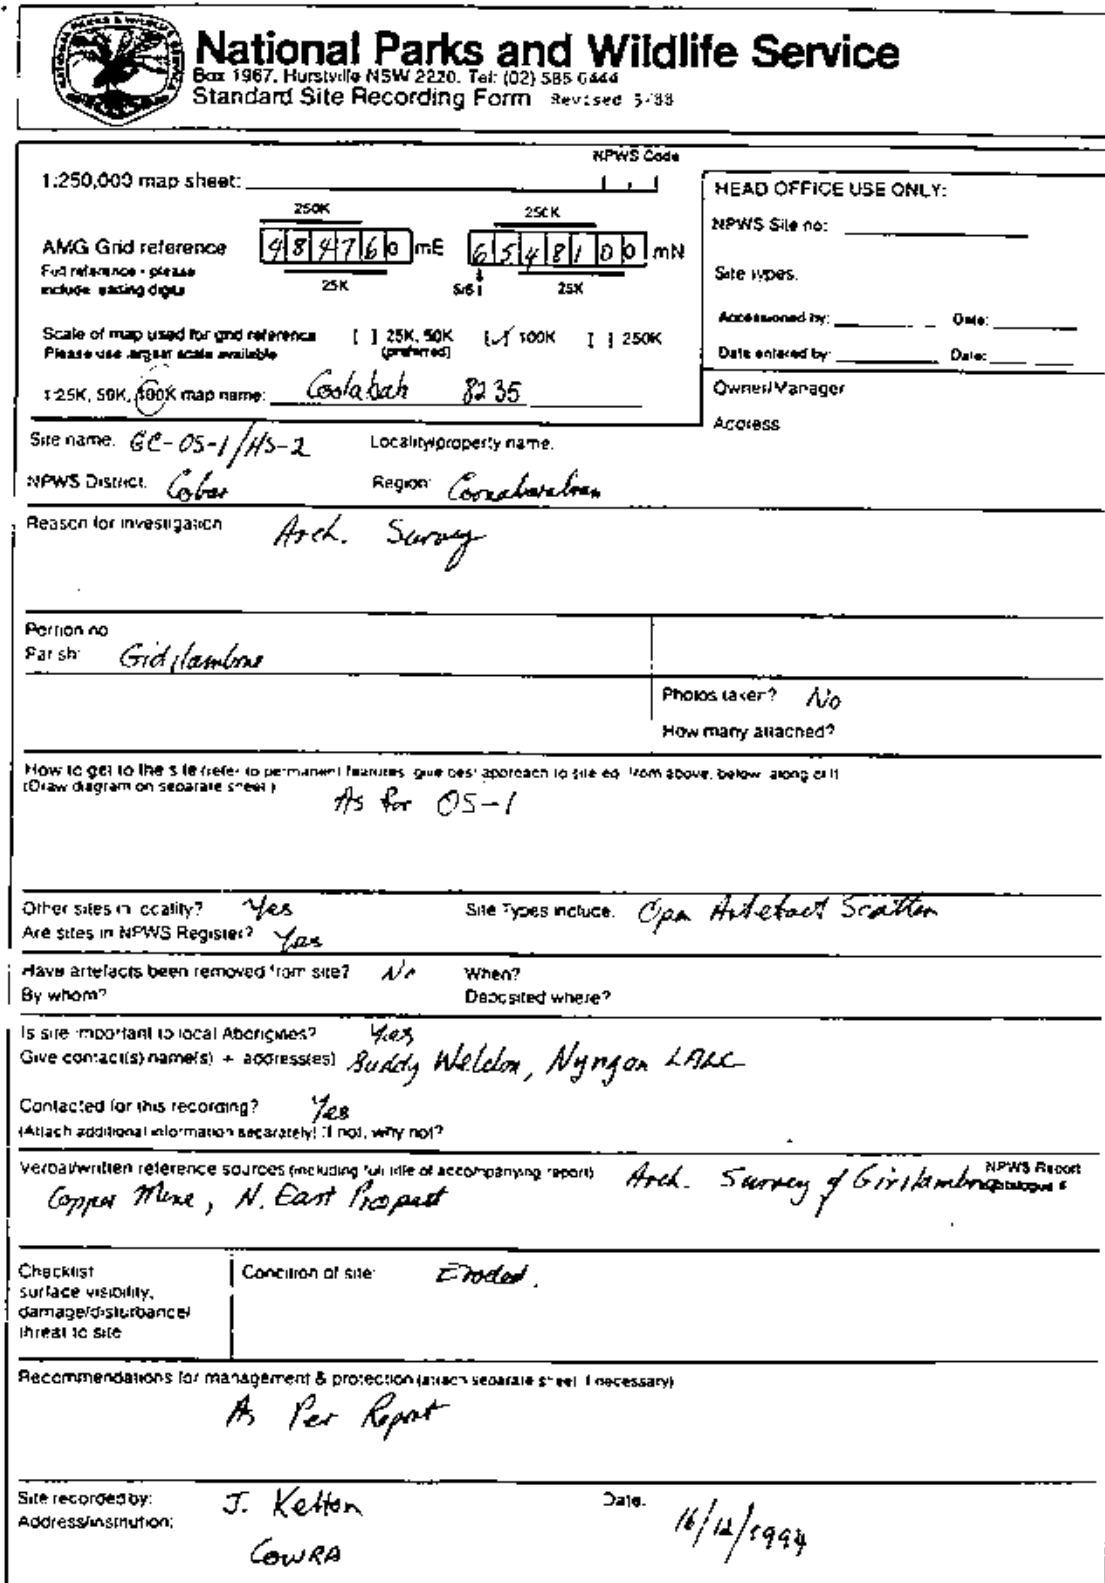 National Parks and Wildlife Service
Box 1967, Hurstville NSW 2220. Tel: (02) 585 6444
Standard Site Recording Form Revised 5/88
NPWS Code
1:250,000 map sheet:
HEAD OFFICE USE ONLY:
250K 250K
NPWS Site no:
AMG Grid reference 484760 mE 6548100 mN
Full reference - please
include leading digits
25K 25K
Site types:
Accessioned by: Date:
Scale of map used for grid reference [ ] 25K, 50K [✓] 100K [ ] 250K
Please use largest scale available (preferred)
Date entered by: Date:
1:25K, 50K, 100K map name: Coolabah 8235
Owner/Manager
Address
Site name: GC-OS-1/HS-2 Locality/property name:
NPWS District: Cobar Region: Coonabarabran
Reason for investigation
Arch. Survey
Portion no
Parish: Girilambone
Photos taken? No
How many attached?
How to get to the site (refer to permanent features, give best approach to site eg. from above, below, along cliff
(Draw diagram on separate sheet)
As for OS-1
Other sites in locality? Yes Site Types include: Open Artefact Scatter
Are sites in NPWS Register? Yes
Have artefacts been removed from site? No When?
By whom? Deposited where?
Is site important to local Aborigines? Yes
Give contact(s) name(s) + address(es) Buddy Weldon, Nyngan LALC
Contacted for this recording? Yes
(Attach additional information separately) If not, why not?
Verbal/written reference sources (including full title of accompanying report) Arch. Survey of Girilambone
NPWS Report
Catalogue #
Copper Mine, N. East Prospect
Checklist
surface visibility,
damage/disturbance/
threat to site
Condition of site: Eroded.
Recommendations for management & protection (attach separate sheet if necessary)
As Per Report
Site recorded by: J. Kelton Date: 16/12/1994
Address/institution: COWRA